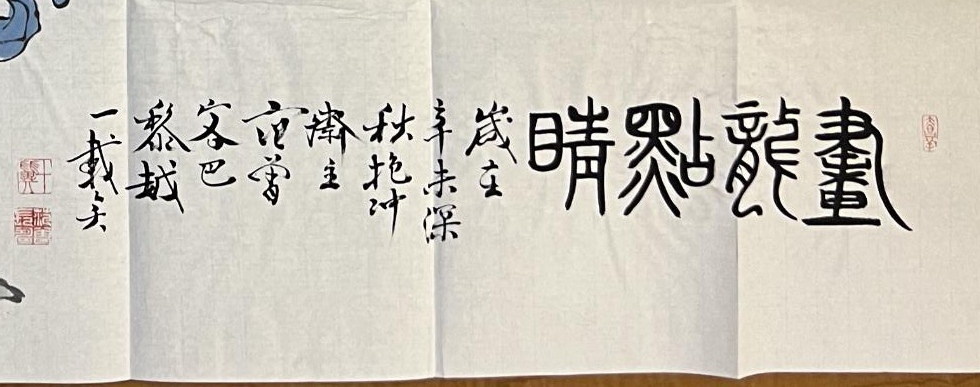 畫龍點睛
歲在
辛未深
秋抱冲
齋主
范曾
客巴
黎越
一載矣